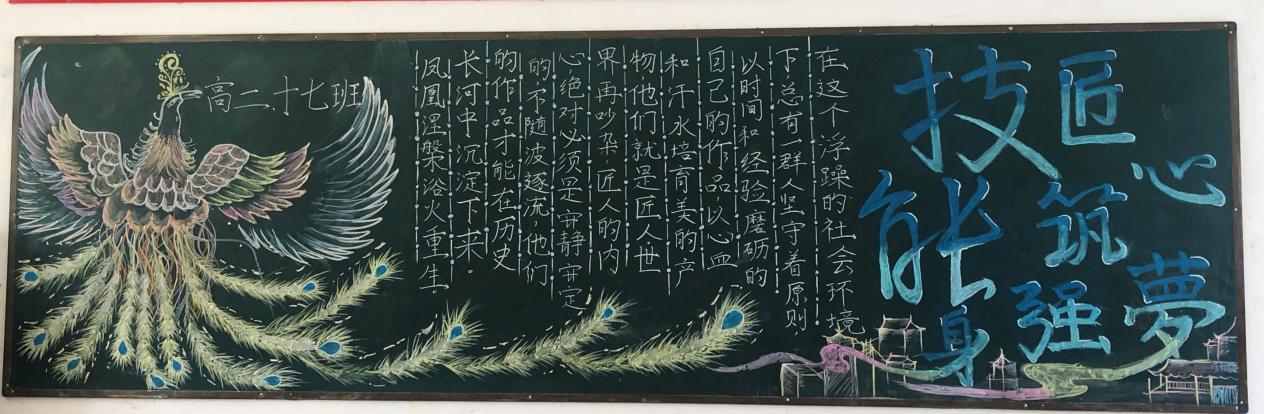 匠心筑夢
技能强身
在这个浮躁的社会环境
下总有一群人坚守着原则
以时间和经验磨砺的
自己的作品,以心血
和汗水培育美的产
物,他们就是匠人世
界再吵杂匠人的内
心绝对必须是安静安定
的不随波逐流,他们
的作品才能在历史
长河中沉淀下来。
凤凰涅槃浴火重生
高二十七班